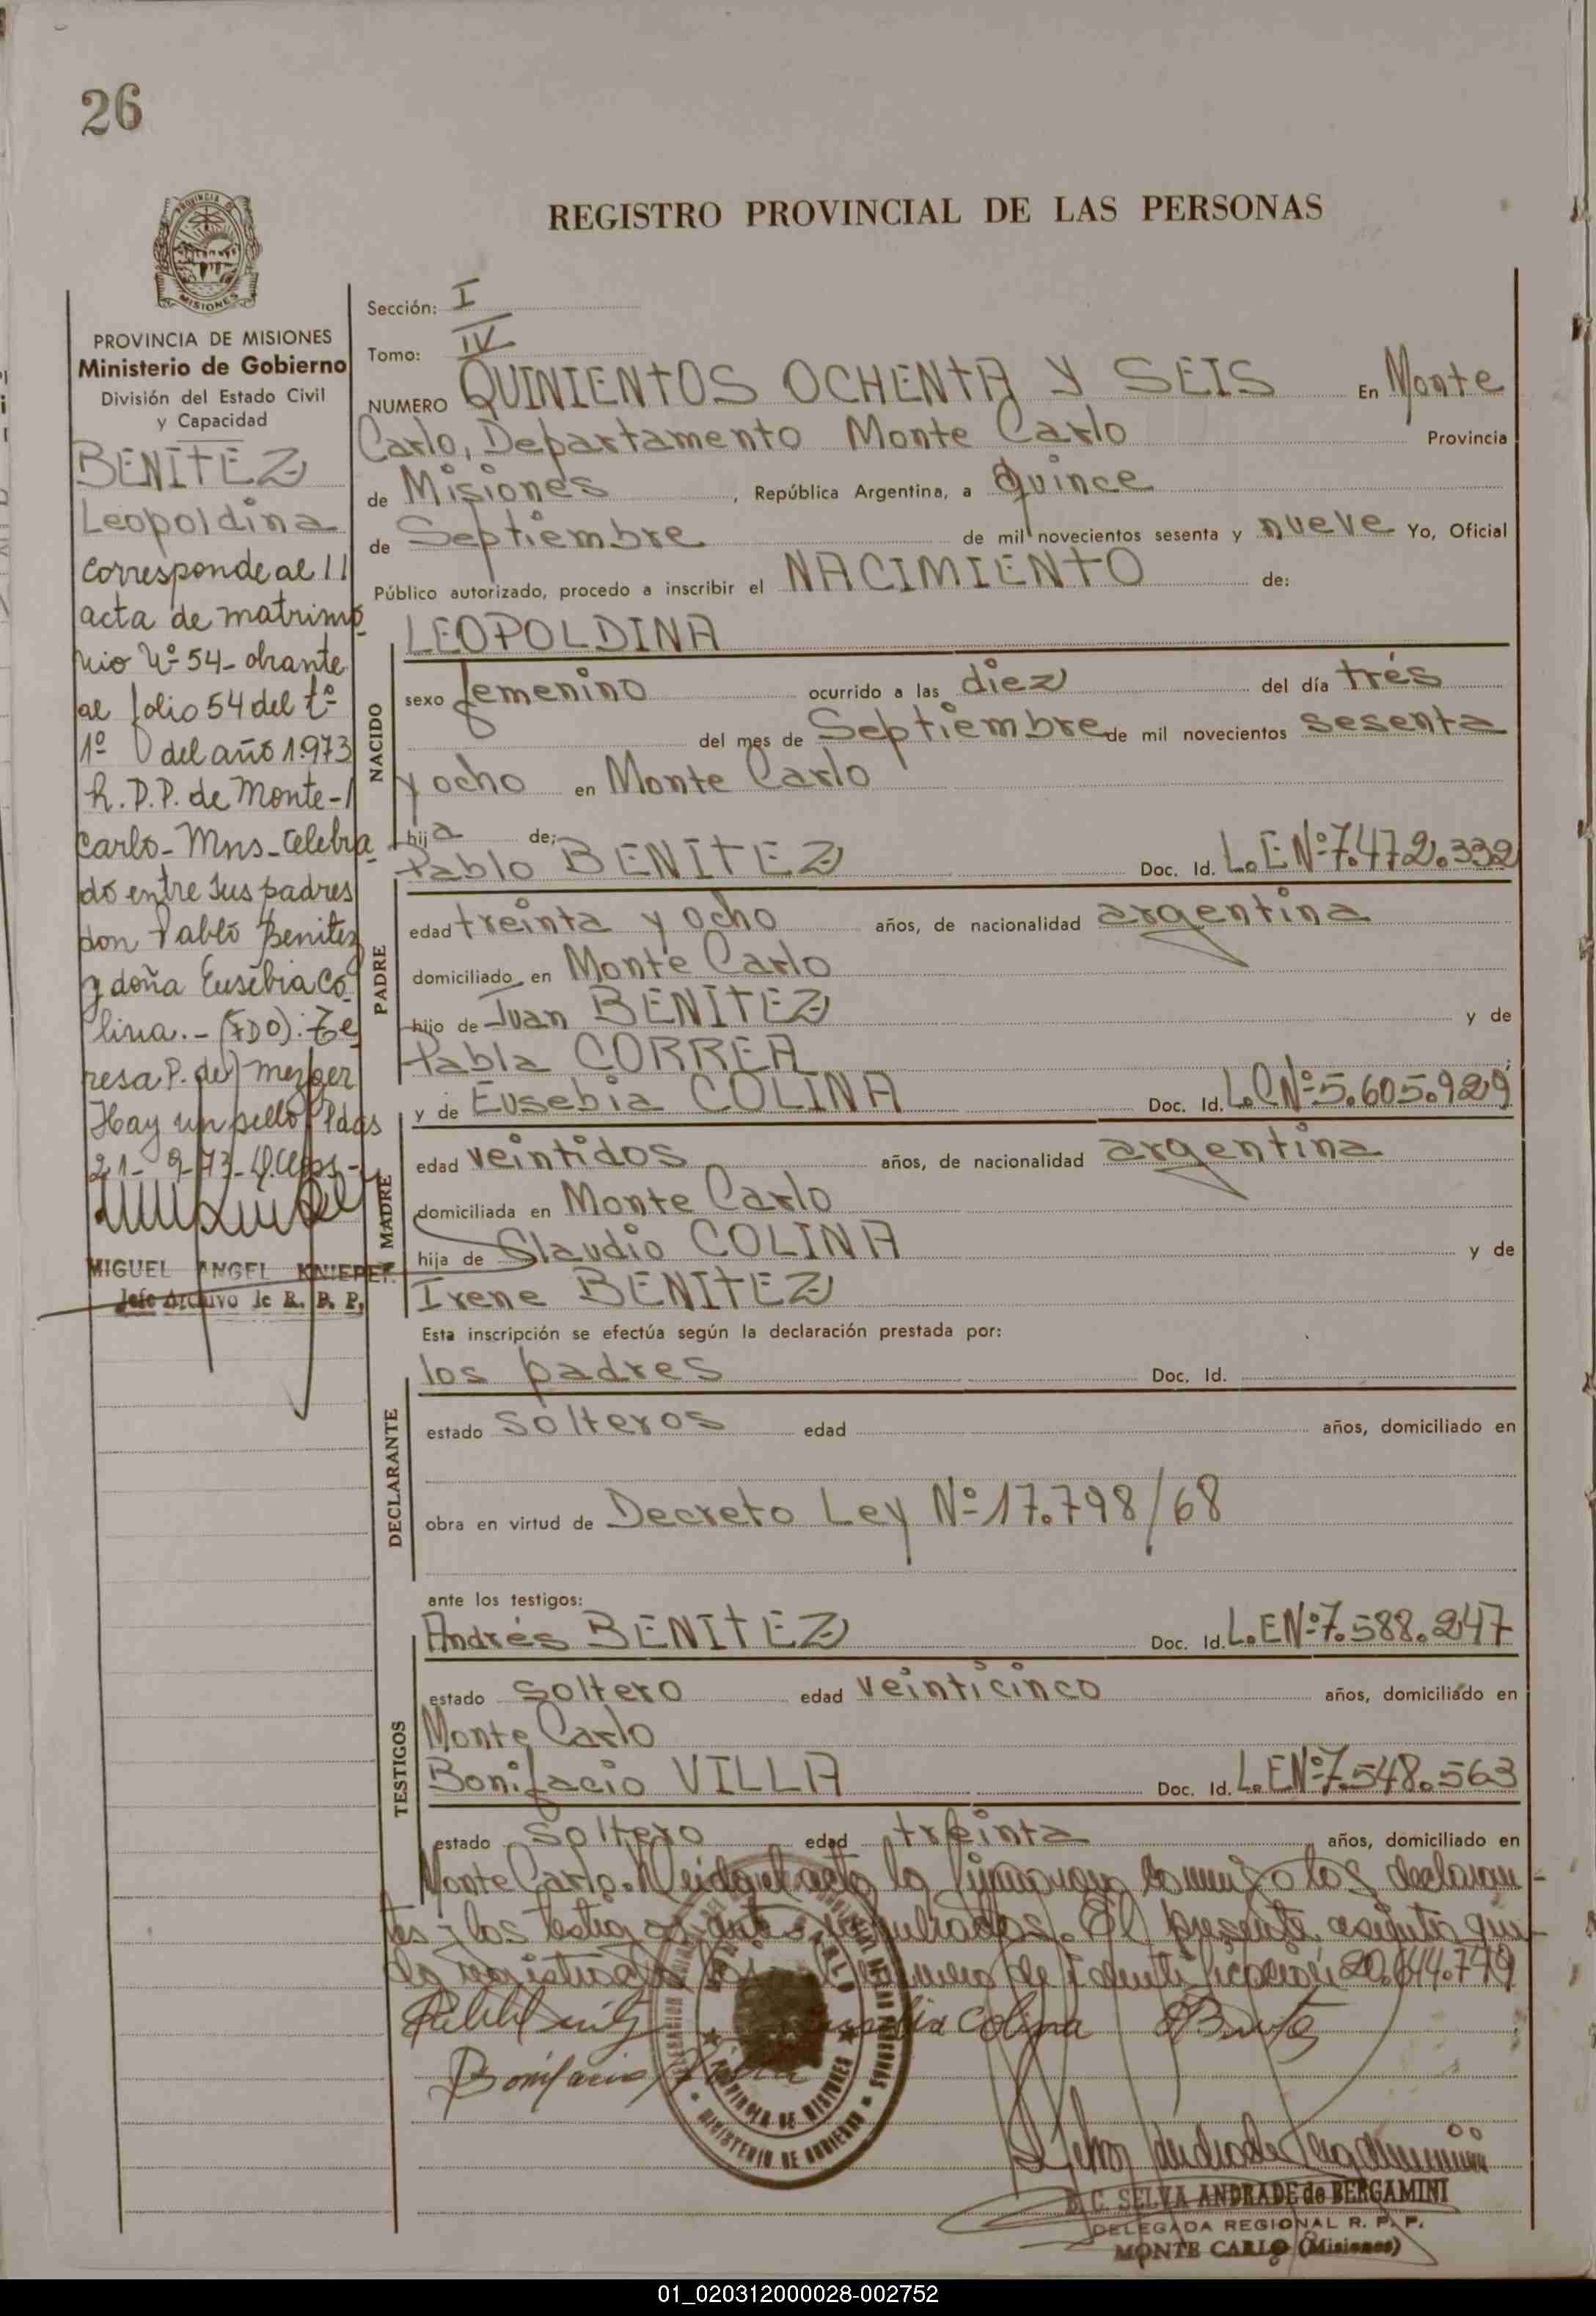 26
REGISTRO PROVINCIAL DE LAS PERSONAS
PROVINCIA DE MISIONES
Ministerio de Gobierno
División del Estado Civil
y Capacidad
BENITEZ
Leopoldina
Corresponde al
acta de matrimo
nio Nº 54- obrante
al folio 54 del tº
1º del año 1.973
R.P.P. de Monte-
carlo- Mns- Celebra
do entre sus padres
don Pablo Benitez
y doña Eusebia Co
lina.- (FDO): Te
resa P. de Mezger
Hay un sello Pdas
21- 9-73-
MIGUEL ANGEL KNIEPER
Jefe Archivo de R. P. P.
Sección: I
Tomo: IV
NUMERO QUINIENTOS OCHENTA Y SEIS En Monte
Carlo, Departamento Monte Carlo Provincia
de Misiones, República Argentina, a quince
de Septiembre de mil novecientos sesenta y nueve Yo, Oficial
Público autorizado, procedo a inscribir el NACIMIENTO de:
LEOPOLDINA
NACIDO
sexo femenino ocurrido a las diez del día trés
del mes de Septiembre de mil novecientos sesenta
y ocho en Monte Carlo
hija de:
Pablo BENITEZ Doc. Id. L.E Nº 7.472.332
PADRE
edad treinta y ocho años, de nacionalidad argentina
domiciliado en Monte Carlo
hijo de Juan BENITEZ y de
Pabla CORREA
y de Eusebia COLINA Doc. Id. L.C Nº 5.605.929
MADRE
edad veintidos años, de nacionalidad argentina
domiciliada en Monte Carlo
hija de Claudio COLINA y de
Irene BENITEZ
Esta inscripción se efectúa según la declaración prestada por:
los padres Doc. Id.
DECLARANTE
estado solteros edad años, domiciliado en
obra en virtud de Decreto Ley Nº 17.798/68
ante los testigos:
Andrés BENITEZ Doc. Id. L.E Nº 7.588.247
TESTIGOS
estado soltero edad veinticinco años, domiciliado en
Monte Carlo
Bonifacio VILLA Doc. Id. L.E Nº 7.548.563
estado soltero edad treinta años, domiciliado en
Monte Carlo. Leida el acta la firman conmigo los declaran
tes y los testigos antes nombrados. El presente asiento que
da registrado número de identificación 20.644.779
Colina
Bonifacio Villa
PROVINCIA DE MISIONES
MINISTERIO DE GOBIERNO
C. SELVA ANDRADE de BERGAMINI
DELEGADA REGIONAL R. P. P.
MONTE CARLO (Misiones)
01_020312000028-002752